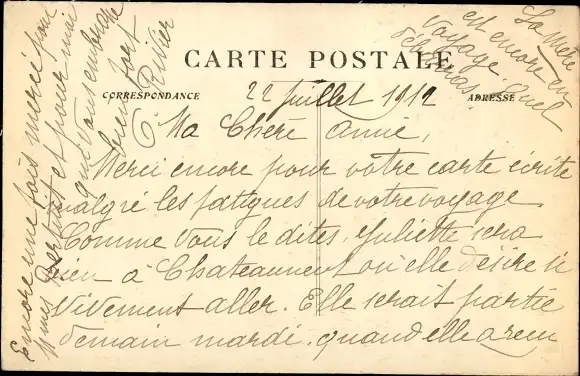 CARTE POSTALE
CORRESPONDANCE
ADRESSE
22 Juillet 1912
Ma Chère Amie,
Merci encore pour votre carte écrite
malgré les fatigues de votre voyage.
Comme vous le dites, Juliette sera
bien à Chateauneuf où elle désire si
vivement aller. Elle serait partie
demain mardi, quand elle a reçu
Encore une fois merci pour
Mmes et pour moi
qui vous embrasse
bien fort
C. Rivier
La mère
est encore en
voyage. Quel